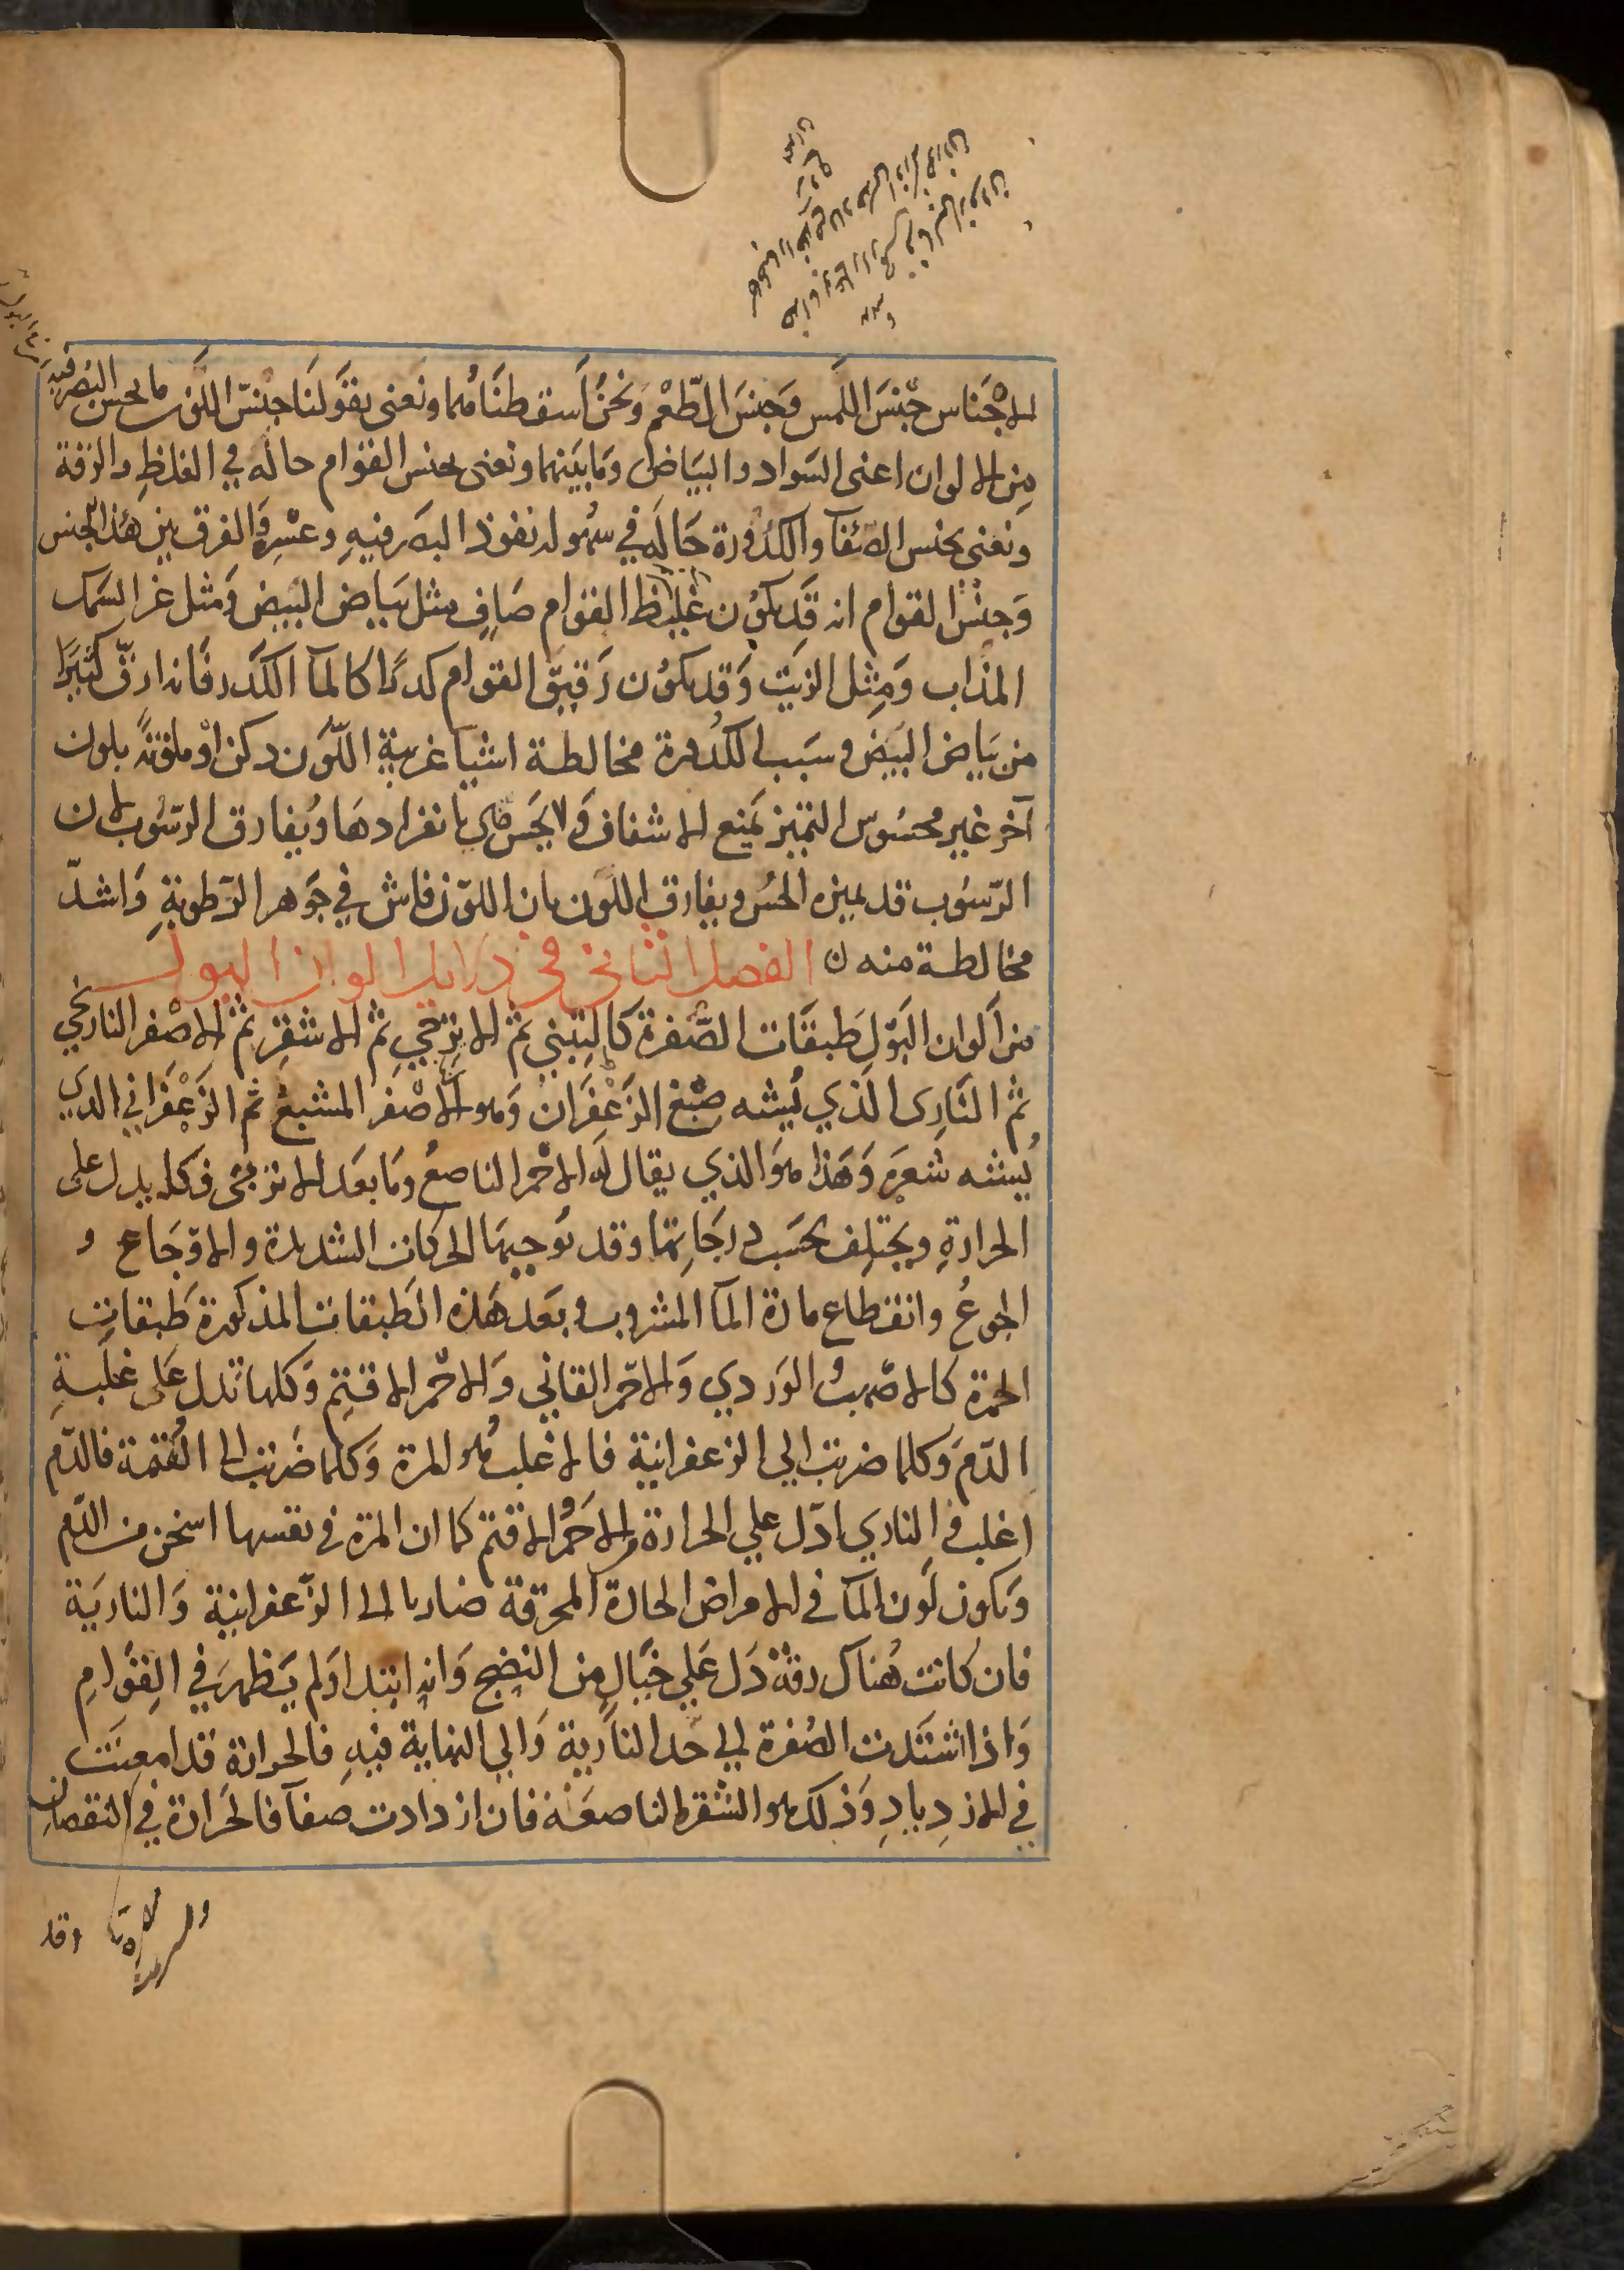 الاجناس جنس اللمس وجنس الطعم ونحن اسقطناهما ونعنى بقولنا جنس اللون ما يحس البصر فيه
من الالوان اعنى السواد والبياض وما بينهما ونعنى بجنس القوام حاله في الغلظ والرقة
ونعنى بجنس الصفآ والكدورة حاله في سهولة نفوذ البصر فيه وعسره والفرق بين هذا الجنس
وجنس القوام انه قد يكون غليظ القوام صاف مثل بياض البيض ومثل غرا السمك
المذاب ومثل الزيت وقد يكون رقيق القوام كدرا كالمآ الكدر فانه ارق كثيرا
من بياض البيض وسبب الكدورة مخالطة اشيا غريبة اللون دكن او ملونة بلون
آخر غير محسوس التمييز تمنع الاشفاف ولا يحس هي بانفرادها ويفارق الرسوب لان
الرسوب قد يميزه الحس ويفارق اللون بان اللون فاش في جوهر الرطوبة واشد
مخالطة منه ن الفصل الثاني في دلايل الوان البول
من الوان البول طبقات الصفرة كالتبني ثم الاترجي ثم الاشقر ثم الاصفر النارنجي
ثم النارى الذي يشبه صبغ الزعفران وهو الاصفر المشبع ثم الزعفراني الذي
يشبه شعره وهذا هو الذي يقال له الاحمر الناصع وما بعد الاترجى فكله يدل على
الحرارة ويختلف بحسب درجاتها وقد توجبها الحركات الشديدة والاوجاع و
الجوع وانقطاع مادة المآ المشروب وبعد هذه الطبقات المذكورة طبقات
الحمرة كالاصهب والوردي والاحمر القاني والاحمر الاقتم وكلها تدل على غلبة
الدم وكلما ضربت الي الزعفرانية فالاغلب هو المرة وكلما ضربت الى القتمة فالدم
اغلب والناري ادل علي الحرارة والاحمر الاقتم كما ان المرة في نفسها اسخن من الدم
ويكون لون المآ في الامراض الحادة المحرقة ضاربا الى الزعفرانية والنارية
فان كانت هناك رقة دل علي خيال من النضج وانه ابتدا ولم يظهر في القوام
واذا اشتدت الصفرة الي حد النارية والي النهاية فيه فالحرارة قد امعنت
في الازدياد وذلك هو الشقرة الناصعة فان ازدادت صفآ فالحرارة في النقصان
وقد